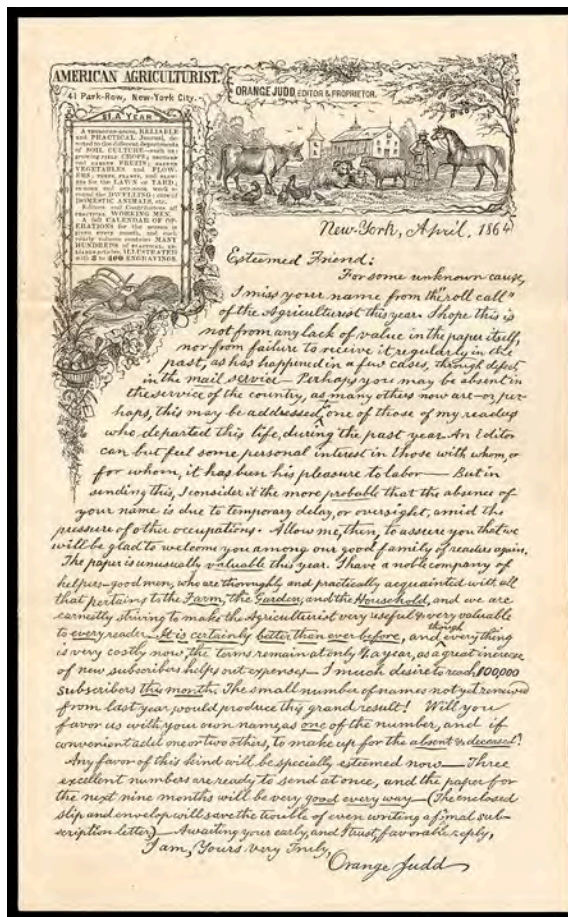 AMERICAN AGRICULTURIST.
41 Park-Row, New-York City.
ORANGE JUDD, EDITOR & PROPRIETOR.
$1. A YEAR
A THOROUGH-GOING, RELIABLE
and PRACTICAL Journal, de-
voted to the different departments
of SOIL CULTURE—such as
growing FIELD CROPS; ORCHARD
and GARDEN FRUITS; GARDEN
VEGETABLES and FLOW-
ERS; TREES, PLANTS, and FLOW-
ERS for the LAWN or YARD;
INDOOR and OUTDOOR work a-
round the DWELLING; care of
DOMESTIC ANIMALS, etc.
Editors and Contributors all
PRACTICAL WORKING MEN.
A full CALENDAR OF OP-
ERATIONS for the season is
given every month, and each
yearly volume contains MANY
HUNDREDS of PRACTICAL,
ILLUSTRATED
ENGRAVINGS.
New-York, April, 1864
Esteemed Friend:
For some unknown cause,
I miss your name from the "roll call"
of the Agriculturist this year. I hope this is
not from any lack of value in the paper itself,
nor from failure to receive it regularly in the
past, as has happened in a few cases, through defect
in the mail service — Perhaps you may be absent in
the service of the country, as many others now are—or per-
haps, this may be addressed to one of those of my readers
who departed this life, during the past year. An Editor
can but feel some personal interest in those with whom, or
for whom, it has been his pleasure to labor — But in
sending this, I consider it the more probable that the absence of
your name is due to temporary delay, or oversight, amid the
pressure of other occupations. Allow me, then, to assure you that we
will be glad to welcome you among our good family of readers again.
The paper is unusually valuable this year. I have a noble company of
helpers—good men, who are thoroughly and practically acquainted with all
that pertains to the Farm, the Garden, and the Household, and we are
earnestly striving to make the Agriculturist very useful & very valuable
to every reader — It is certainly better than ever before, and though everything
is very costly now, the terms remain at only $1. a year, as a great increase
of new subscribers helps out expenses — I much desire to reach 100,000
subscribers this month. The small number of names not yet renewed
from last year, would produce this grand result! Will you
favor us with your own name, as one of the number, and if
convenient add one or two others, to make up for the absent & deceased?
Any favor of this kind will be specially esteemed now — Three
excellent numbers are ready to send at once, and the paper for
the next nine months will be very good every way — (The enclosed
slip and envelop will save the trouble of even writing a formal sub-
scription letter.) — Awaiting your early, and I trust, favorable reply,
I am, Yours very Truly,
Orange Judd